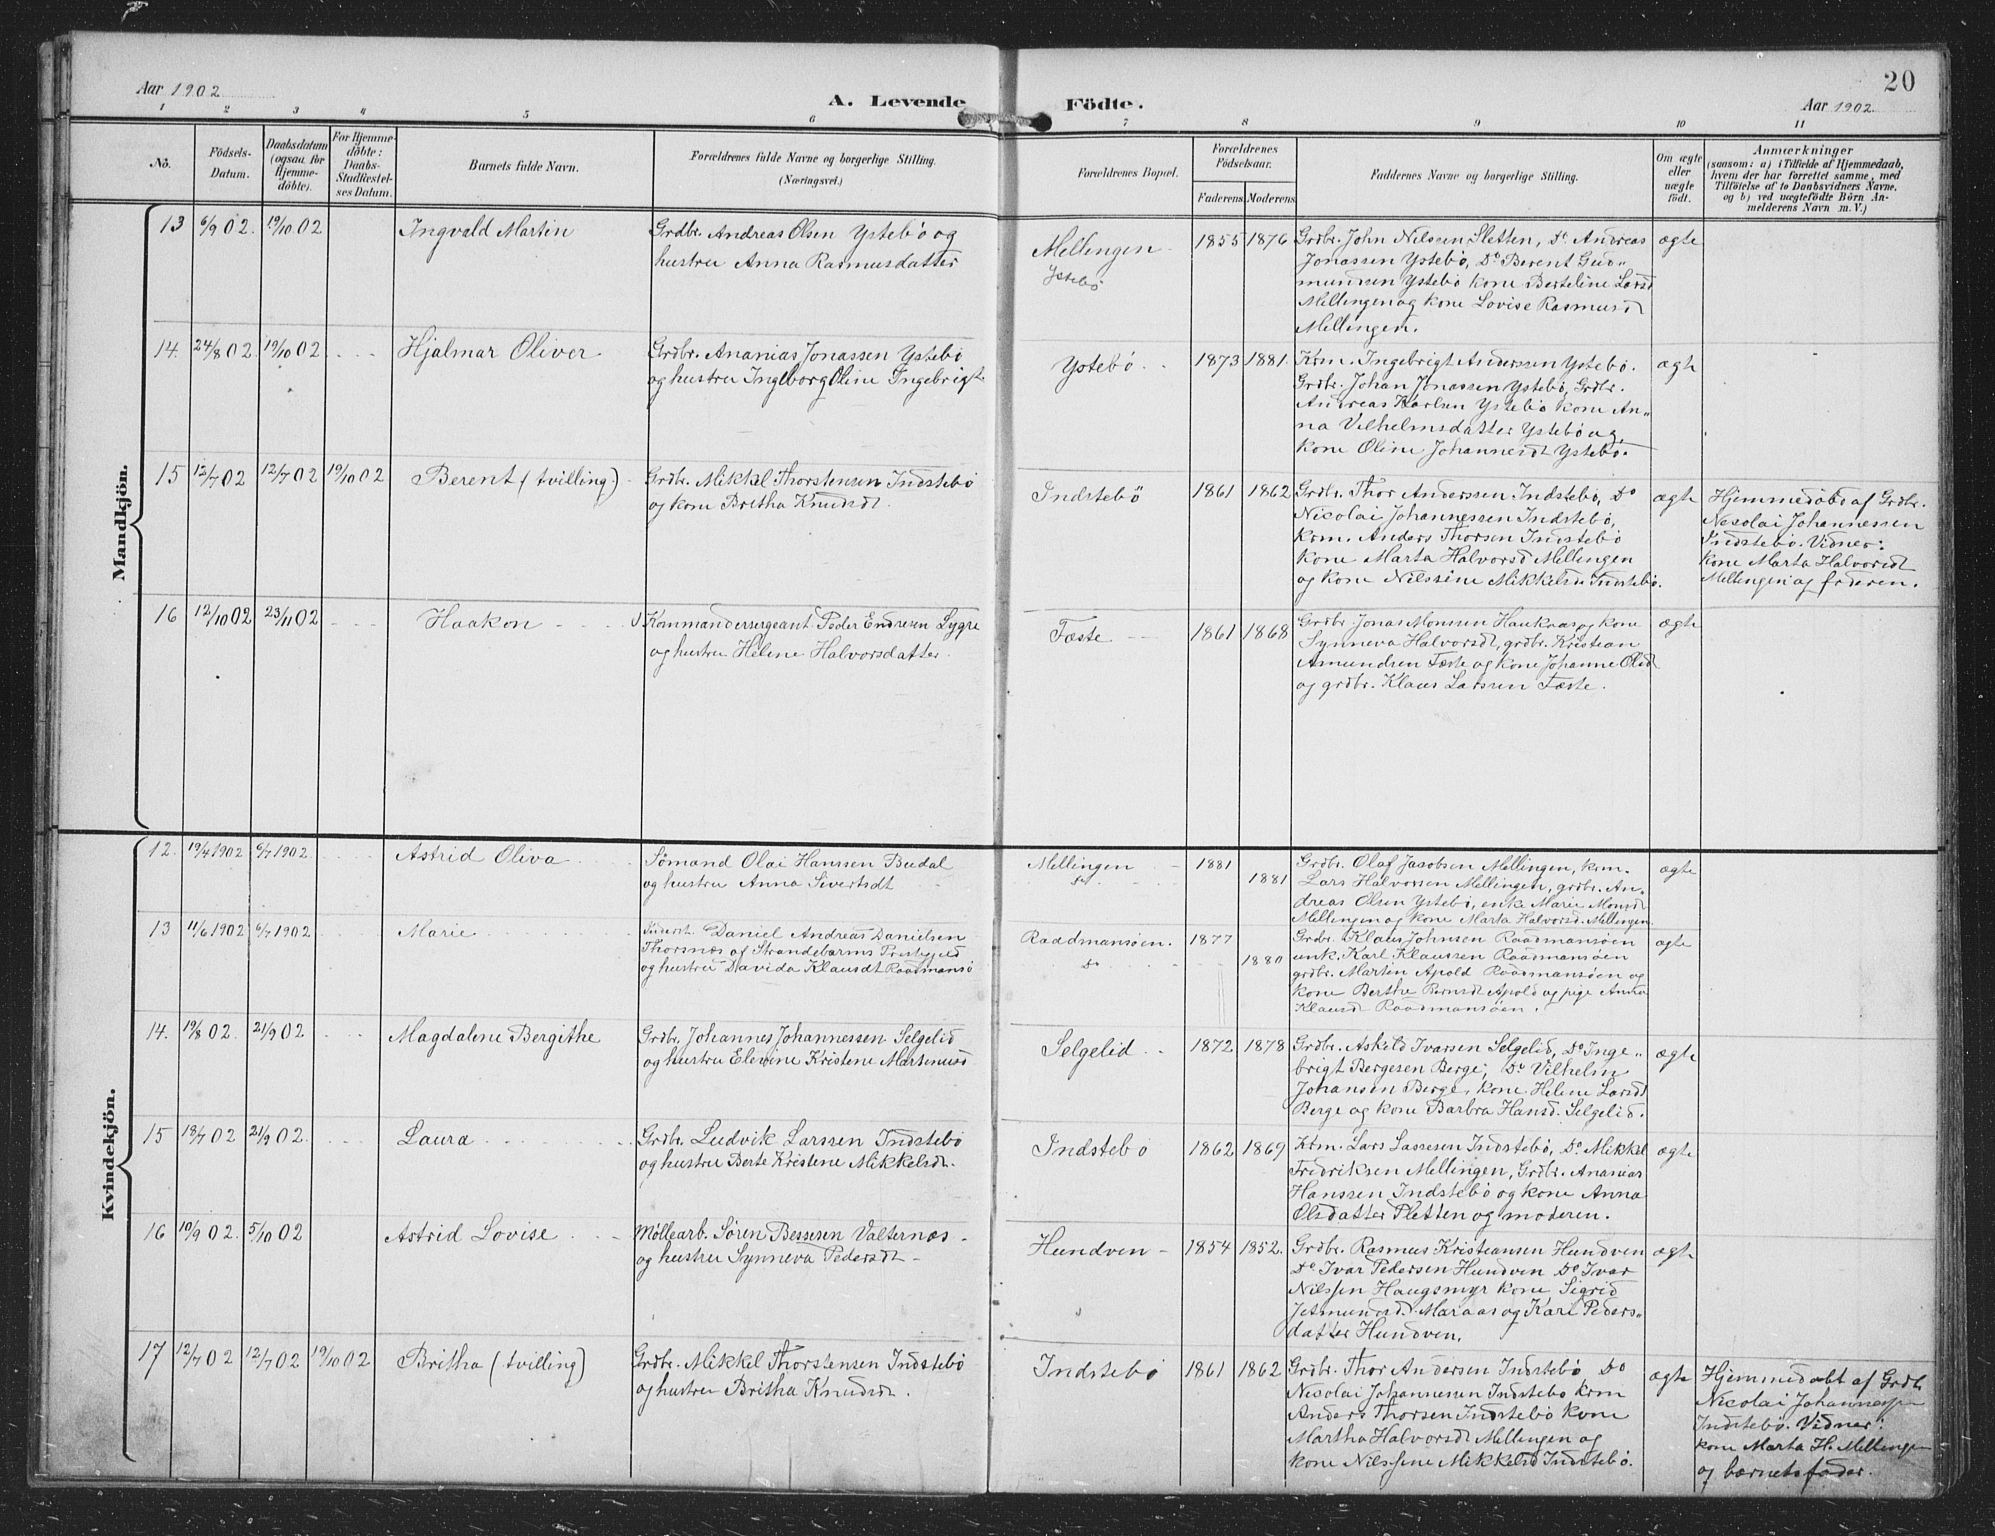 20
Aar 1902
A. Levende
Födte.
Aar 1902
1 2 3 4 5 6 7 8 9 10 11
No.
Födsels-
Datum.
Daabsdatum
(ogsaa for
Hjemme-
döbte).
For Hjemme-
döbte:
Daabs-
Stadfæstel-
ses Datum.
Barnets fulde Navn.
Forældrenes fulde Navne og borgerlige Stilling.
(Næringsvei.)
Forældrenes Bopæl.
Forældrenes
Födselsaar.
Faderens Moderens
Faddernes Navne og borgerlige Stilling.
Om ægte
eller
uægte
födt.
Anmærkninger
(saasom: a) i Tilfælde af Hjemmedaab,
hvem der har forrettet samme, med
Tilföielse af to Daabsvidners Navne,
og b) ved uægtefödte Börn An-
melderens Navn m. V.)
Mandkjön.
13 6/9 02. 19/10 02 Ingvald Martin
Grdbr. Andreas Olsen Ystebö og
hustru Anna Rasmusdatter
Mellingen
Ystebö
1855 1876
Grdbr. John Nilssen Sletten, Do Andreas
Jonassen Ystebö, Do Berent Gud-
mundsen Ystebö kone Berteline Larsd
Mellingen og kone Lovise Rasmusd
Mellingen.
ægte
14. 24/8 02 19/10 02 Hjalmar Oliver
Grdbr. Ananias Jonassen Ystebö
og hustru Ingeborg Oline Ingebrigt
Ystebö
1873 1881
Krm. Ingebrigt Anderssen Ystebö.
Grdbr. Johan Jonassen Ystebö, Grdbr.
Andreas Karlsen Ystebö kone An-
na Vilhelmsdatter Ystebö og
kone Oline Johannesdt Ystebö.
ægte
15 12/7 02 12/7 02 19/10 02 Berent (tvilling)
Grdbr. Mikkel Thorstensen Indstebö
og kone Britha Knudsdt.
Indstebö
1861 1862
Grdbr. Thor Anderssen Indstebö, Do
Nicolai Johannessen Indstebö,
krm. Anders Thorsen Indstebö
kone Marta Halvorsd Mellingen
og kone Nilssine Mikkelsd Indstebö.
ægte
Hjemmedöbt af Grdbr.
Nicolai Johannessen
Indstebö. Vidner:
kone Marta Halvorsdt
Mellingen og faderen.
16 12/10 02 23/11 02 Haakon
Kommandersergeant Peder Endresen Lygre
og hustru Helene Halvorsdatter.
Tæste
1861 1868
Grdbr Jonas Monsen Haukaas og kone
Synneva Halvorsdt, grdbr. Kristian
Amundsen Tæste og kone Johanne Olsd
og grdbr. Klaus Larssen Tæste.
ægte
Kvindekjön.
12. 19/4 1902 6/7 1902 Astrid Oliva
Sömand Olai Hanssen Budal
og hustru Anna Sivertsdt
Mellingen
do
1881
1881
Grdbr. Olaf Jacobsen Mellingen, krm.
Lars Halvorsen Mellingen, grdbr. An-
dreas Olsen Ystebö, enke Marie Monsdt
Mellingen og kone Marta Halvorsd. Mellingen.
ægte
13 11/6 1902 6/7 1902 Marie
Daniel Andreas Danielsen
Thorsnæs af Strandebarms Prestegjeld
og hustru Davida Klausdt Raadmansö
Raadmansöen.
Do
1877
1880
Grdbr. Klaus Johnsen Raadmansöen
unk. Karl Klaussen Raadmansöen
grdbr. Martin Apold Raadmansöen og
kone Berthe Berntsdt Apold og pige Anna
Klausd Raadmansöen.
ægte
14. 19/8 02. 21/9 02 Magdalene Bergithe
Grdbr. Johannes Johannessen Selgelid
og hustru Elevine Kristene Martenusd
Selgelid
1872 1878
Grdbr. Askild Ivarsen Selgelid, Do Inge-
brigt Bergesen Berge, Do Vilhelm
Johansen Berge, kone Helene Larsdt
Berge og kone Barbra Hansd. Selgelid.
ægte
15 18/7 02 21/9 02. Laura
Grdbr. Ludvik Larssen Indstebö
og hustru Berte Kristene Mikkelsdt.
Indstebö
1862 1869
Krm. Lars Lassesen Indstebö, Do Mikkel
Fredriksen Mellingen, Grdbr. Ananias
Hanssen Indstebö og kone Anna
Olsdatter Sletten og moderen.
ægte
16 10/9 02. 5/10 02 Astrid Lovise
Möllearb. Sören Bessesen Valternæs
og hustru Synneva Pedersdt
Hundven
1854 1852.
Grdbr. Rasmus Kristiansen Hundven
Do Ivar Pedersen Hundven Do Ivar
Nilssen Haugsmyr kone Sigrid
Jetmundsd. Maraas og Kari Peders-
datter Hundven.
ægte
17 12/7 02 12/7 02 19/10 02 Britha (tvilling)
Grdbr. Mikkel Thorstensen Indstebö
og hustru Britha Knudsdt.
Indstebö
1861 1862
Grdbr. Thor Andersen Indstebö Do
Nicolai Johannesen Indstebö krm
Anders Thorsen Indstebö kone
Martha Halvorsdt Mellingen og
kone Nilssine Mikkelsd Indstebö.
ægte
Hjemmedöbt af Grdbr
Nicolai Johannessen
Indstebö. Vidner:
kone Marta H. Mellingen
og barnets fader.